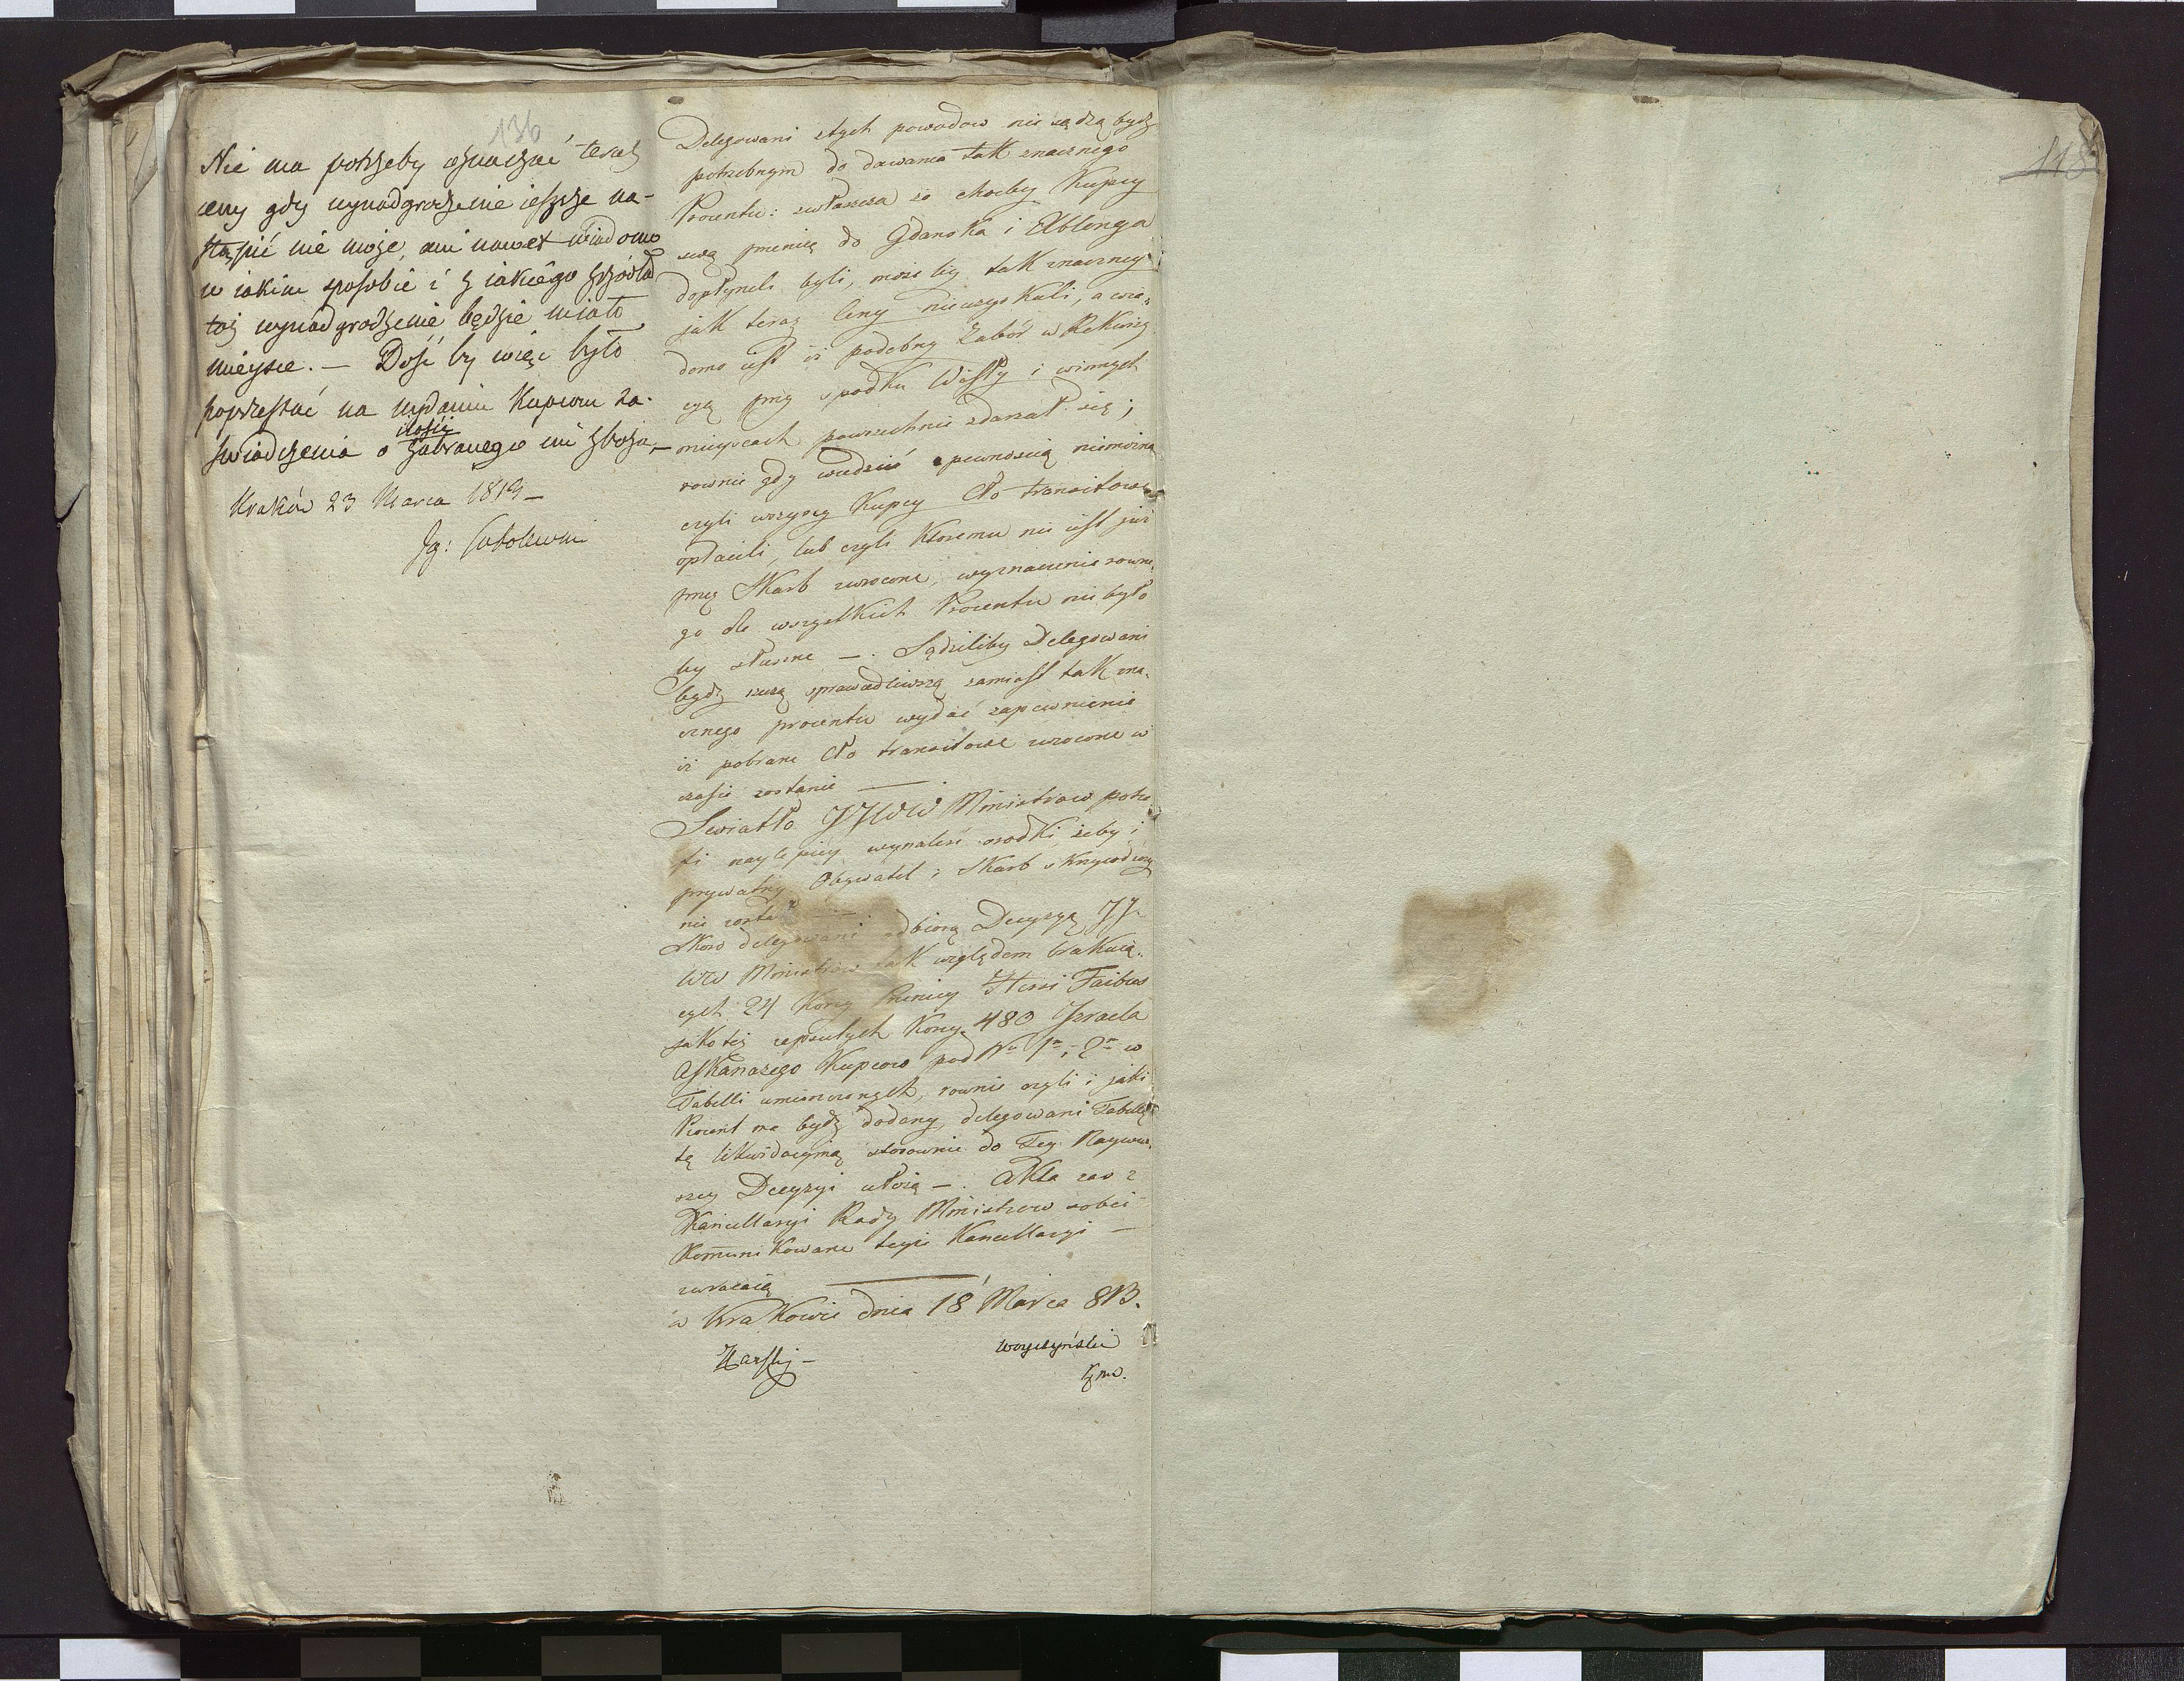 136
Nie ma potrzeby oznaczać teraz
ceny gdy wynadgrodzenie ieszcze na-
stąpić nie może, ani nawet wiadomo
w iakim sposobie i z iakiego zrzódła
toż wynadgrodzenie będzie miało
mieysce. — Dość by więc było
poprzestać na wydaniu Kupcom za-
świadczenia o ilości zabranego im zboża, —
Kraków 23 Marca 1813 —
Ig: Sobolewski
Delegowani z tych powodow nie sądzą bydź
potrzebnym do dawania tak znacznego
Procentu: zwłaszcza że choćby Kupcy
swą pszenicę do Gdanska i Elblonga
dopłyneli byli, może by tak znaczney
jak teraz Ceny nieuzyskali, a wia-
domo iest iż podobny Zabór w Rekwizy
cyą przy spadku Wisły i w innych
mieyscach powszechnie zdarzał się;
rownie gdy wiedzieć z pewnością niemożna
czyli wszyscy Kupcy Cło tranzitowe
opłacili, lub czyli Ktoremu nie iest już
przez Skarb zwrocone, wyznaczenie rowne-
go dla wszystkich Procentu nie było
by słuszne —. Sądziliby Delegowani
bydź rzeczą sprawiedliwszą zamiast tak zna-
cznego procentu wydać zapewnienie
iż pobrane Cło tranzitowe zwrocone w
czasie zostanie —
Swiatło JJWW Ministrow potra
fi naylepiey wynaleść srodki, żeby i
prywatny Obywatel i Skarb skrzywdzony
nie został —
Skoro delegowani odbiorą Decyzyą JJ-
WW Ministrow tak względem brakuią-
cych 24 Korcy Pszenicy Herszi Faibus
jakoteż zepsutych Korcy 480 Izraela
Aszkanazego Kupcow pod Nro 1m i 2m w
Tabelli umieszczonych, rownie czyli i jaki
Procent ma bydź dodany, delegowani Tabellę
tę likwidacyiną stosownie do Tey Naywyż-
szey Decyzyi ułożą —. Akta zas z
Kancellaryi Rady Ministrow sobie
Kommunikowane teyże Kancellaryi —
zwracaią
w Krakowie dnia 18 Marca 813.
Woyczyński
118